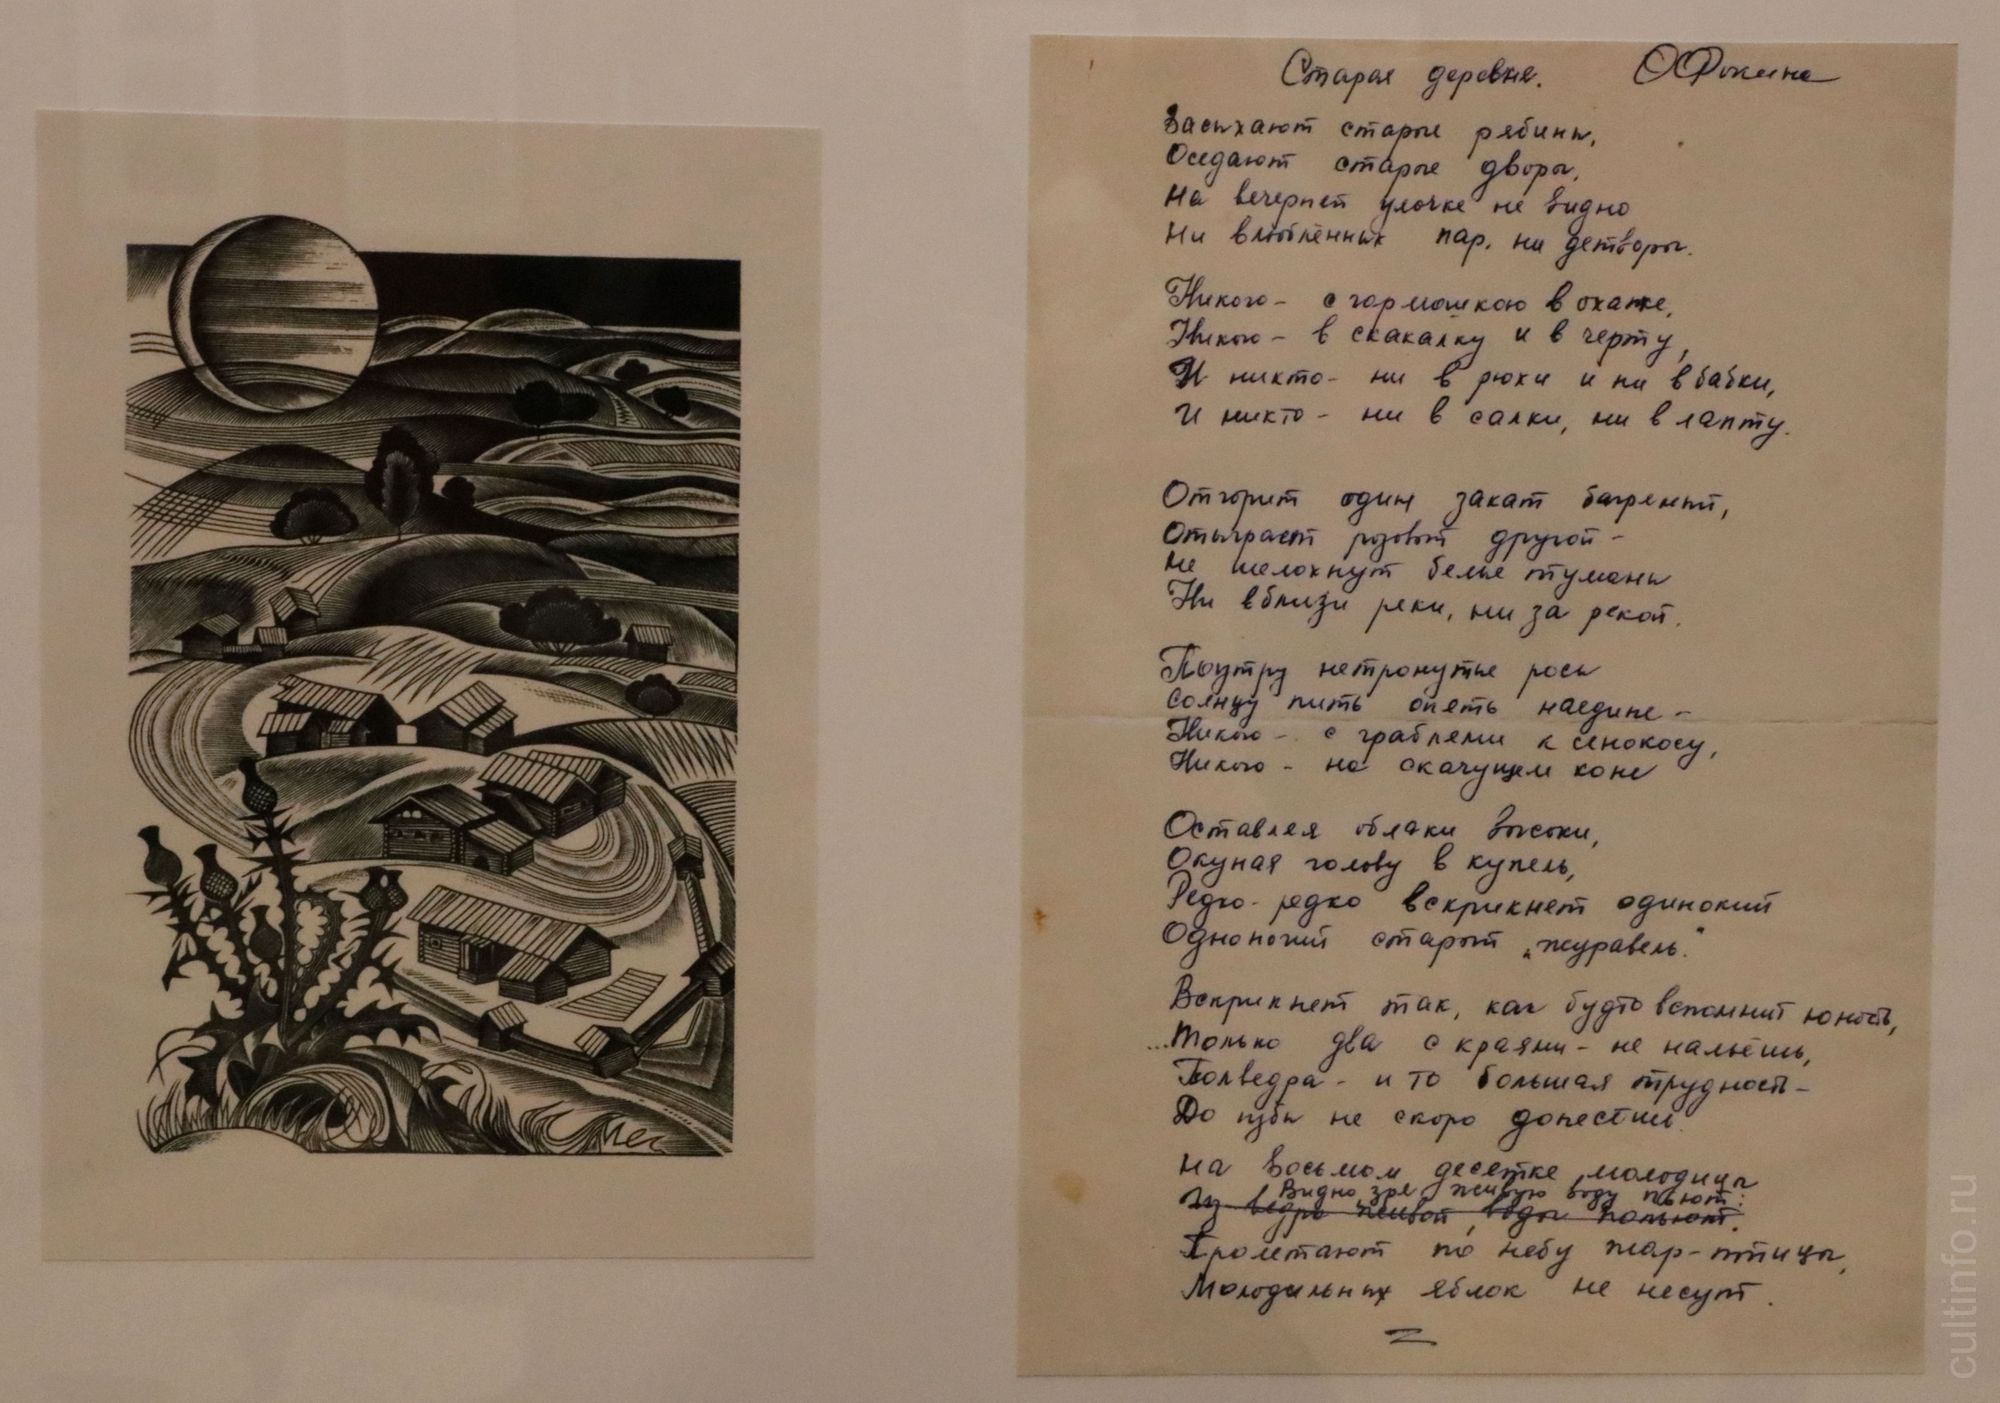 Старая деревня. ОФокина
Засыхают старые рябины,
Оседают старые дворы,
На вечерней улочке не видно
Ни влюблённых пар, ни детворы.
Никого – с гармошкою в охапке,
Никого – в скакалку и в черту,
И никто – ни в рюхи и ни в бабки,
И никто – ни в салки, ни в лапту.
Отгорит один закат багряный,
Отыграет розовый другой –
Не шелохнут белые туманы
Ни вблизи реки, ни за рекой.
Поутру нетронутые росы
Солнцу пить опять наедине –
Никого – с граблями к сенокосу,
Никого – на скачущем коне
Оставляя облаки высоки,
Окуная голову в купель,
Редко-редко вскрикнет одинокий
Одноногий старый „журавель."
Вскрикнет так, как будто вспомнит юность,
...Только два с краями – не нальёшь,
Полведра – и то большая трудность –
До избы не скоро донесёшь.
На восьмом десятке молодицы
Видно, зря живую воду пьют:
Из ведра живой воды попьют.
Пролетают по небу жар-птицы,
Молодильных яблок не несут.
cultinfo.ru